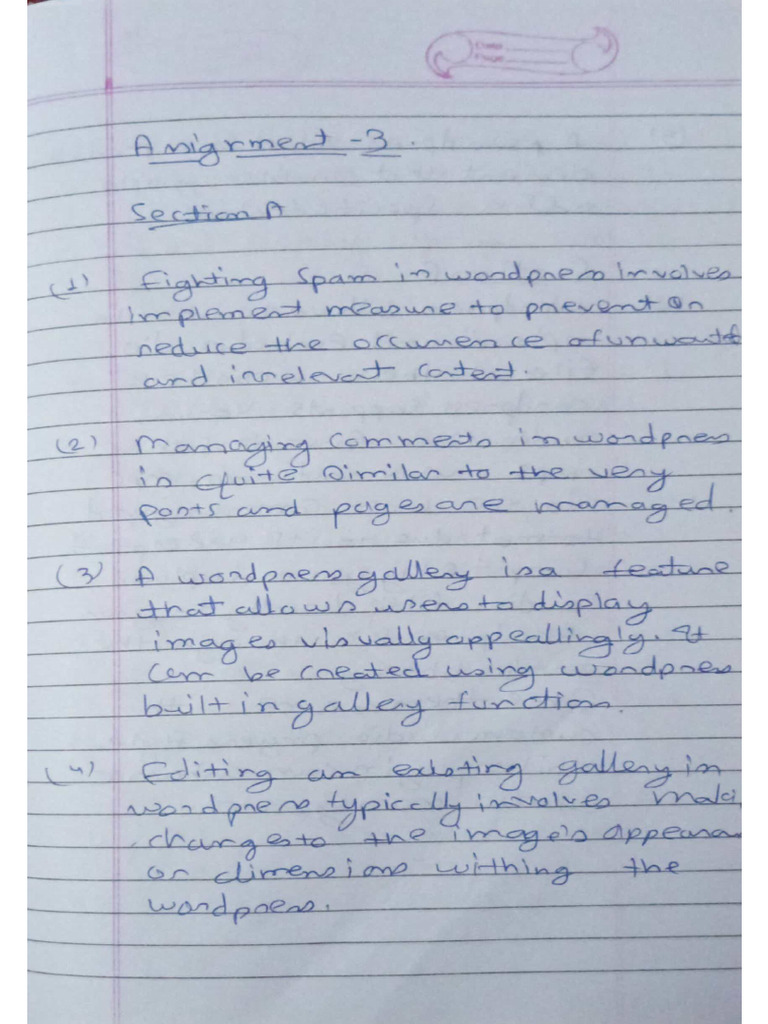 Date
Page
Assignment - 3.
Section A
(1) Fighting Spam in wordpress involves
implement measure to prevent or
reduce the occurrence of unwanted
and irrelevat contest.
(2) Managing Comments in wordpress
is quite similar to the very
posts and pages are managed.
(3) A wordpress gallery is a feature
that allows users to display
images visually appeallingly. It
can be created using wordpress
built in gallery function.
(4) Editing an existing gallery in
wordpress typically involves maki
changes to the image's appeara
or dimensions withing the
wordpress.